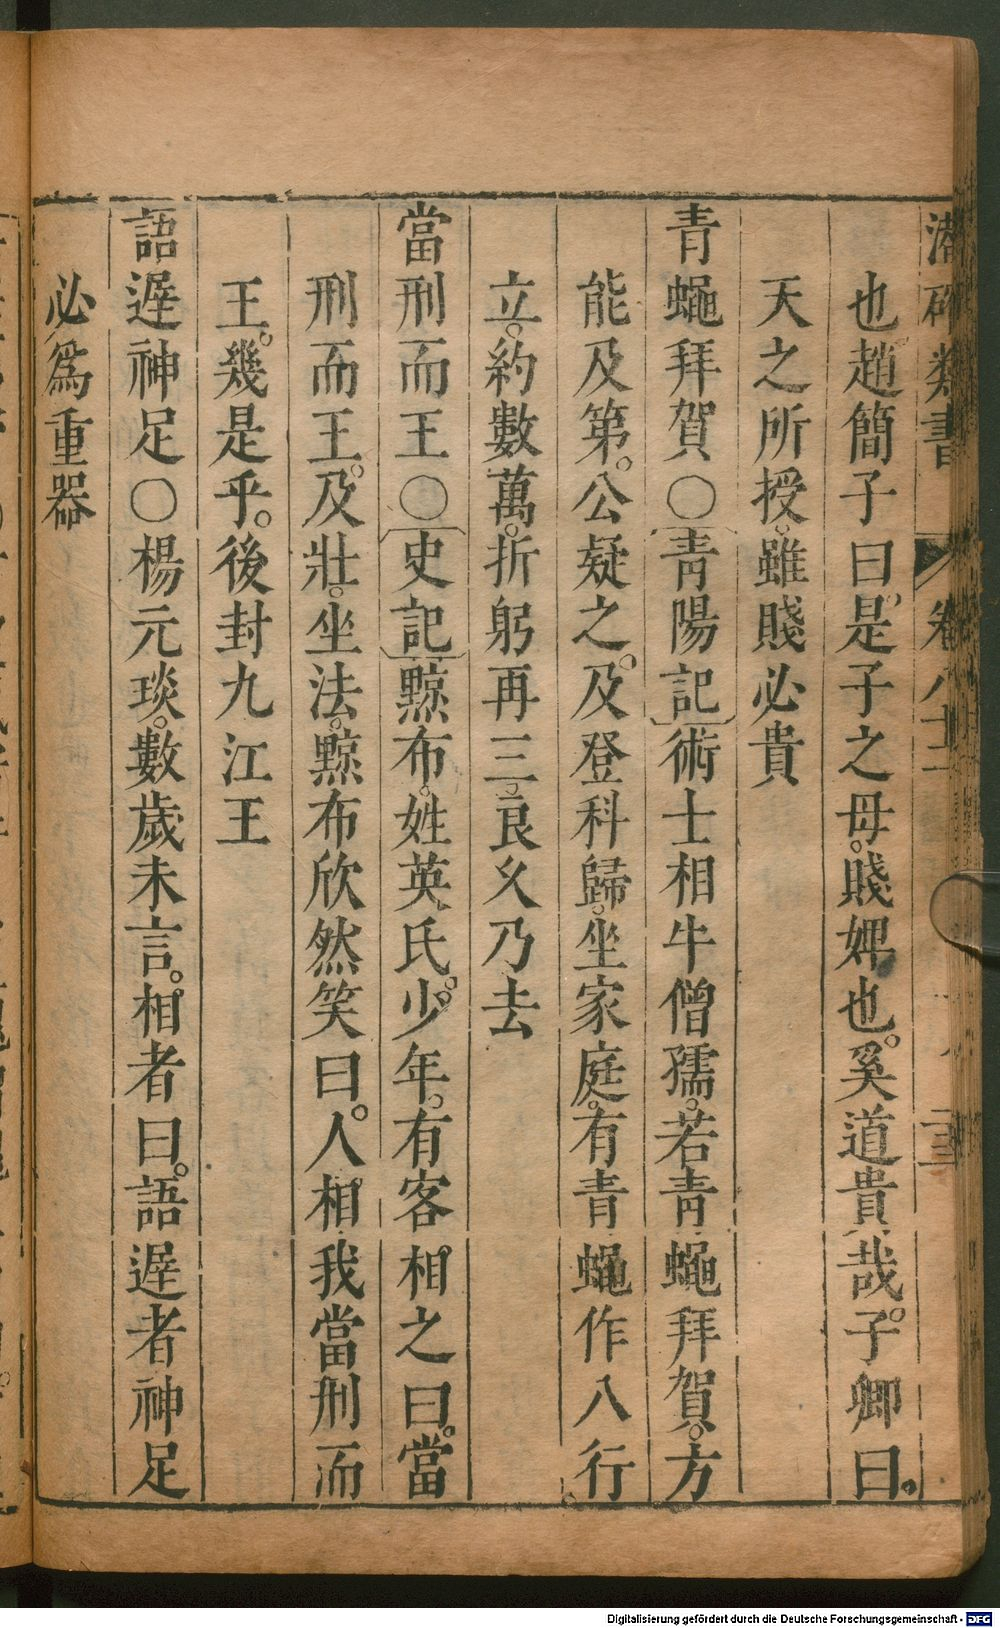 類書 卷八
也趙簡子曰是子之母。賤婢也。奚道貴哉。子卿曰。
天之所授。雖賤必貴
青蠅拜賀〇青陽記術士相牛僧孺。若青蠅拜賀。方
能及第。公疑之。及登科歸。坐家庭。有青蠅作八行
立。約數萬。折躬再三。良久乃去
當刑而王〇史記黥布。姓英氏。少年。有客相之曰。當
刑而王。及壯。坐法。黥布欣然笑曰。人相我當刑而
王。幾是乎。後封九江王
語遲神足〇楊元琰。數歲未言。相者曰。語遲者神足
必爲重器
Digitalisierung gefördert durch die Deutsche Forschungsgemeinschaft - DFG